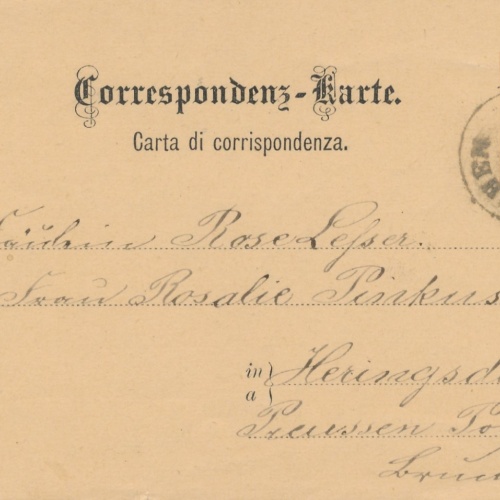 Correspondenz-Karte.
Carta di corrispondenza.
Fräulein Rose Lesser.
Frau Rosalie Pinkus
in
a
Heringsd
Preussen Po
Brun